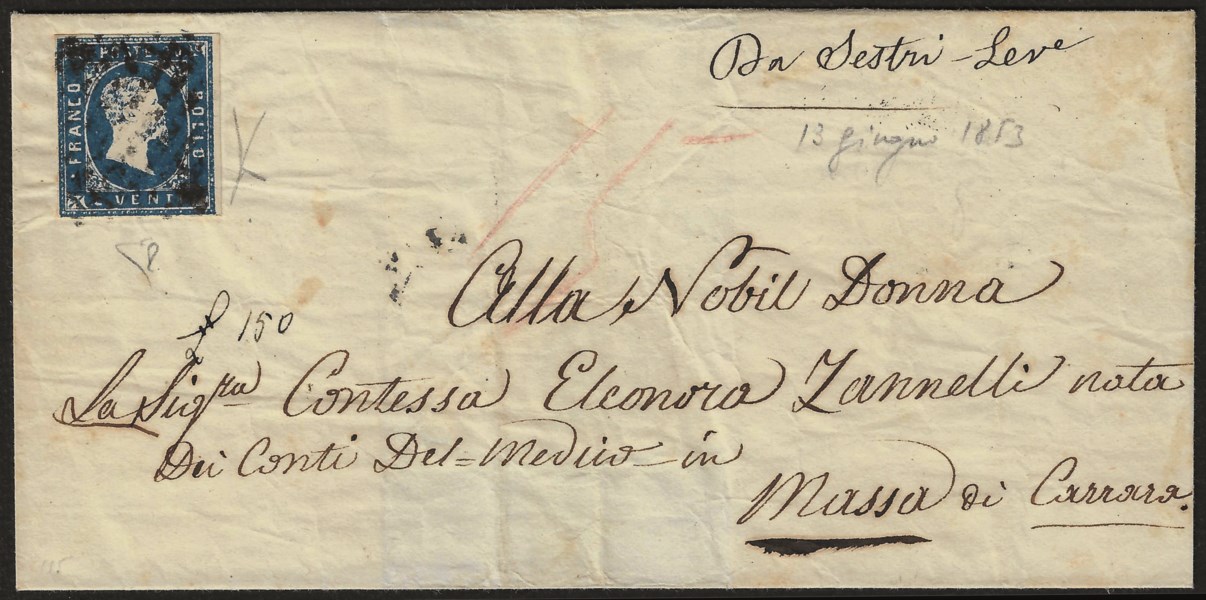 POSTE
FRANCO
BOLLO
C VENTI
Da Sestri-Leve
13 giugno 1853
15
Alla Nobil Donna
150
La Sig.ra Contessa Eleonora Zannelli nata
Dei Conti Del=Medico in
Massa di Carrara.